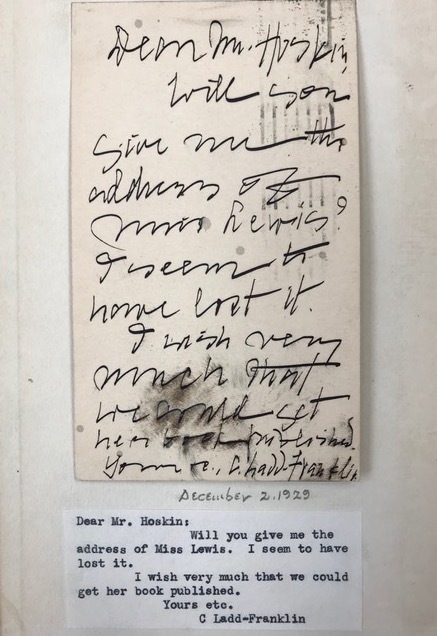 Dear Mr. Hoskin,
Will you
give me the
address of
Miss Lewis?
I seem to
have lost it.
I wish very
much that
we could get
her book published.
Yours etc., C. Ladd-Franklin
December 2, 1929
Dear Mr. Hoskin:
Will you give me the
address of Miss Lewis. I seem to have
lost it.
I wish very much that we could
get her book published.
Yours etc.
C Ladd-Franklin